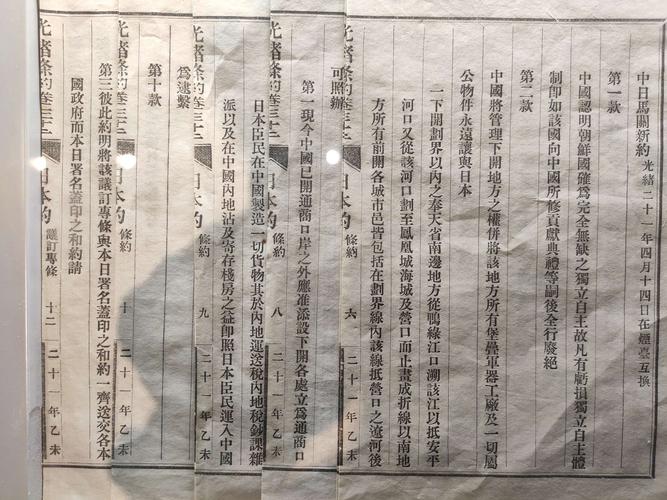 中日馬關新約光緒二十一年四月十四日在煙臺互換
第一款
中國認明朝鮮國確爲完全無缺之獨立自主故凡有虧損獨立自主體
制卽如該國向中國所修貢獻典禮等嗣後全行廢絕
第二款
中國將管理下開地方之權併將該地方所有堡壘軍器工廠及一切屬
公物件永遠讓與日本
一下開劃界以內之奉天省南邊地方從鴨綠江口溯該江以抵安平
河口又從該河口劃至鳳凰城海城及營口而止畫成折線以南地
方所有前開各城市邑皆包括在劃界線內該線抵營口之遼河後
光緒條約卷三十二 日本約 條約 六 二十一年乙未
可照辦
第一現今中國已開通商口岸之外應准添設下開各處立爲通商口
光緒條約卷三十二 日本約 條約 八 二十一年乙未
日本臣民在中國製造一切貨物其於內地運送稅內地稅鈔課雜
派以及在中國內地沾及寄存棧房之益卽照日本臣民運入中國
光緒條約卷三十二 日本約 條約 九 二十一年乙未
爲逮繫
第十款
光緒條約卷三十二 日本約 條約 十 二十一年乙未
第三彼此約明將該議訂專條與本日署名蓋印之和約一齊送交各本
國政府而本日署名蓋印之和約請
光緒條約卷三十二 日本約 議訂專條 十二 二十一年乙未